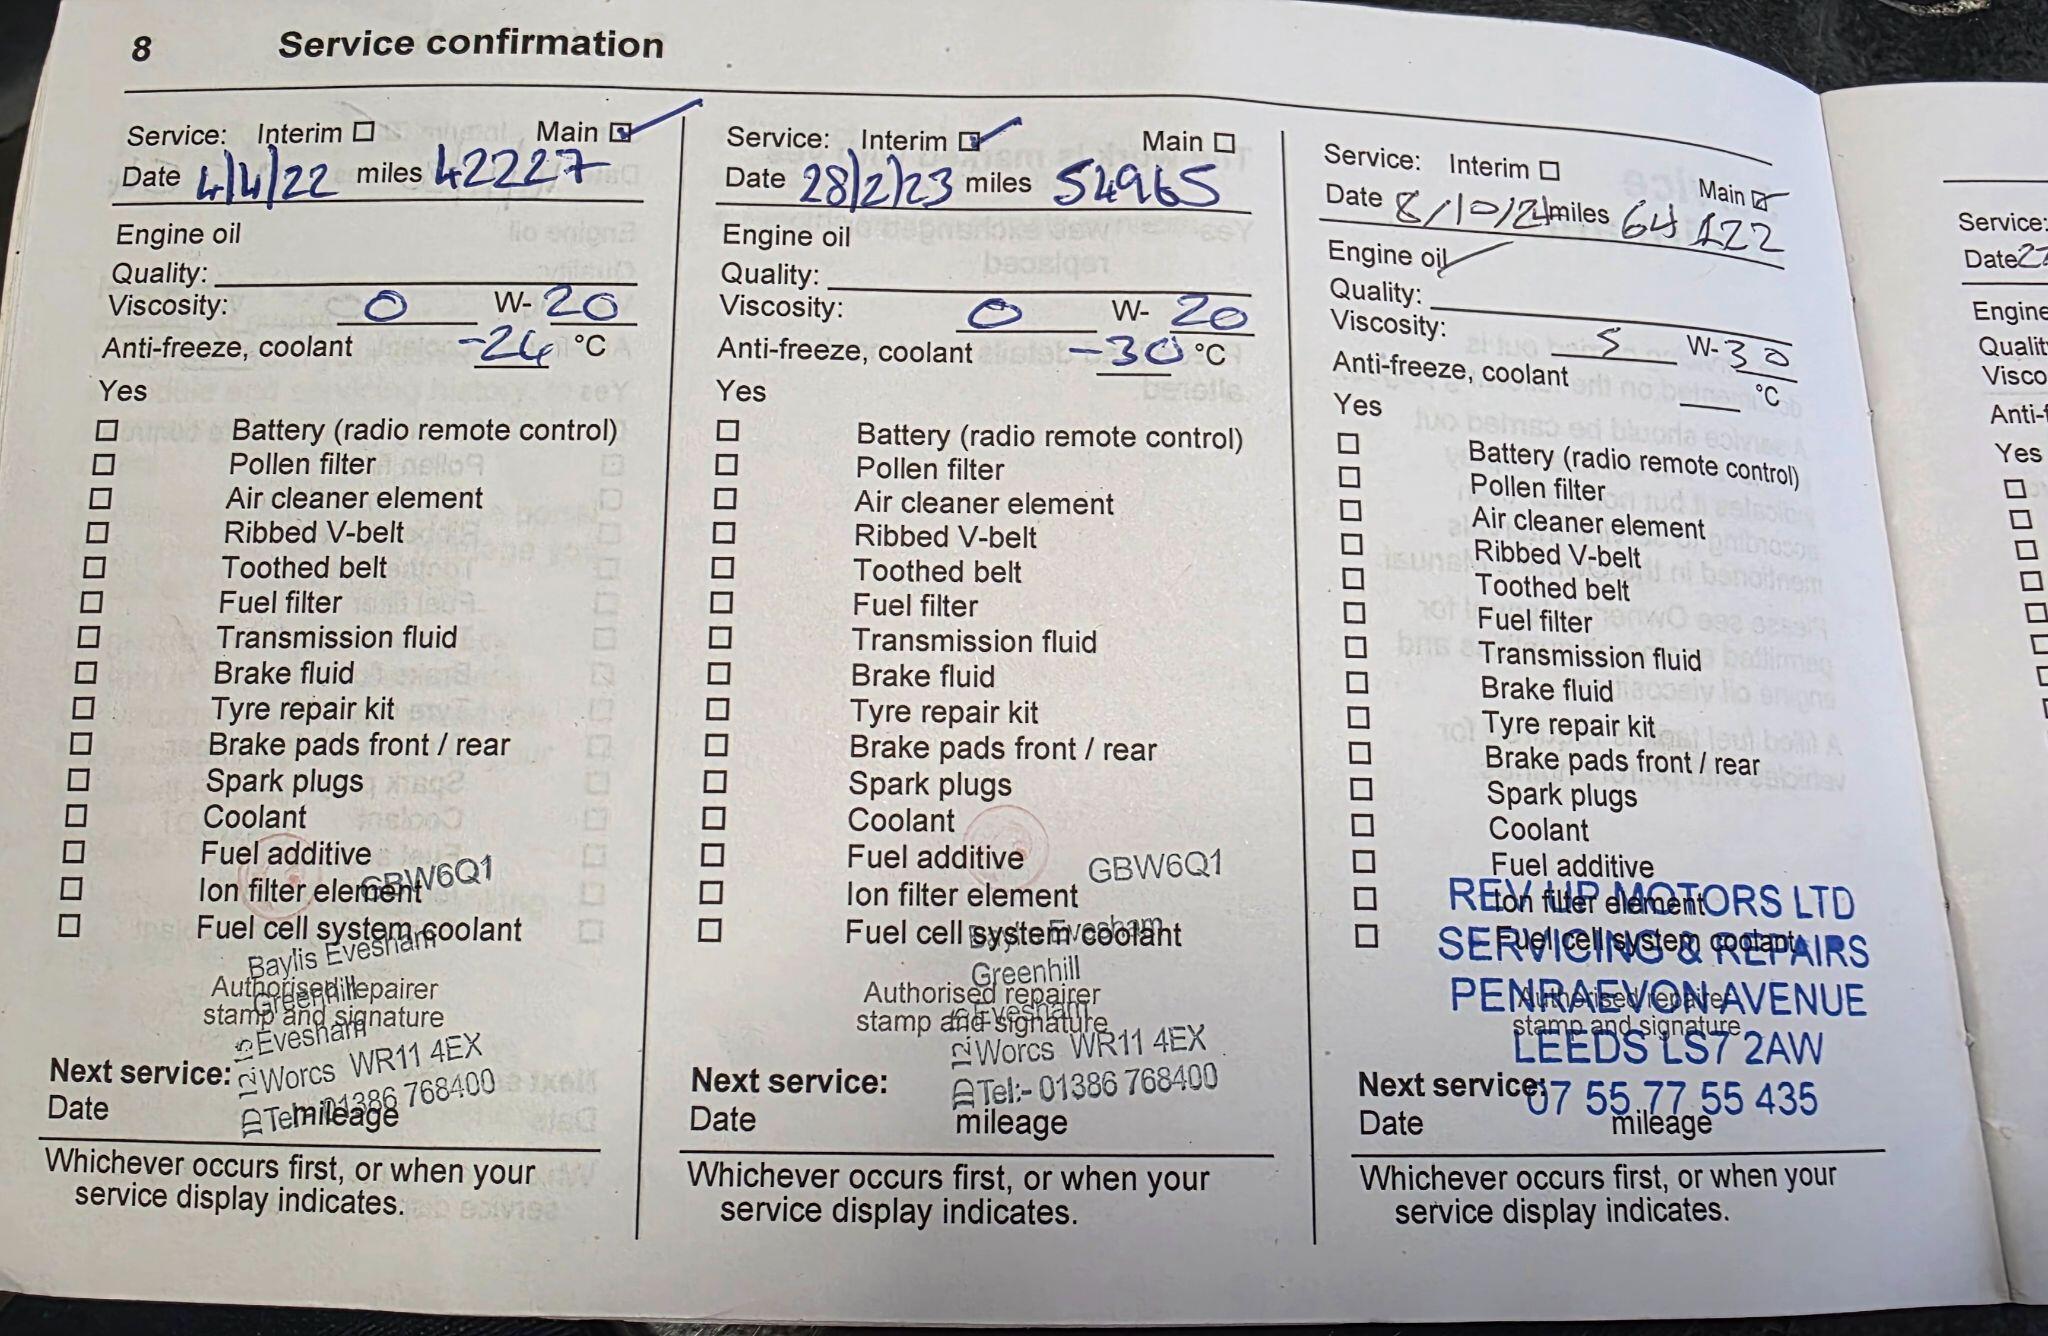 8 Service confirmation
Service: Interim ☐ Main ☑
Date 4/4/22 miles 42227
Engine oil
Quality:
Viscosity: 0 W- 20
Anti-freeze, coolant -24 °C
Yes
☐ Battery (radio remote control)
☐ Pollen filter
☐ Air cleaner element
☐ Ribbed V-belt
☐ Toothed belt
☐ Fuel filter
☐ Transmission fluid
☐ Brake fluid
☐ Tyre repair kit
☐ Brake pads front / rear
☐ Spark plugs
☐ Coolant
☐ Fuel additive
GBW6Q1
☐ Ion filter element
☐ Fuel cell system coolant
Baylis Evesham
Authorised repairer
Greenhill
stamp and signature
Evesham
Worcs WR11 4EX
Next service:
Tel:- 01386 768400
Date mileage
Whichever occurs first, or when your
service display indicates.
Service: Interim ☑ Main ☐
Date 28/2/23 miles 54965
Engine oil
Quality:
Viscosity: 0 W- 20
Anti-freeze, coolant -30 °C
Yes
☐ Battery (radio remote control)
☐ Pollen filter
☐ Air cleaner element
☐ Ribbed V-belt
☐ Toothed belt
☐ Fuel filter
☐ Transmission fluid
☐ Brake fluid
☐ Tyre repair kit
☐ Brake pads front / rear
☐ Spark plugs
☐ Coolant
☐ Fuel additive
GBW6Q1
☐ Ion filter element
☐ Fuel cell system coolant
Baylis Evesham
Greenhill
Authorised repairer
Evesham
stamp and signature
Worcs WR11 4EX
Next service:
Tel:- 01386 768400
Date mileage
Whichever occurs first, or when your
service display indicates.
Service: Interim ☐ Main ☑
Date 8/10/24 miles 64122
Engine oil ✓
Quality:
Viscosity: 5 W- 30
Anti-freeze, coolant °C
Yes
☐ Battery (radio remote control)
☐ Pollen filter
☐ Air cleaner element
☐ Ribbed V-belt
☐ Toothed belt
☐ Fuel filter
☐ Transmission fluid
☐ Brake fluid
☐ Tyre repair kit
☐ Brake pads front / rear
☐ Spark plugs
☐ Coolant
☐ Fuel additive
REV UP MOTORS LTD
☐ Ion filter element
☐ Fuel cell system coolant
SERVICING & REPAIRS
PENRAEVON AVENUE
Authorised repairer
stamp and signature
LEEDS LS7 2AW
Next service:
07 55 77 55 435
Date mileage
Whichever occurs first, or when your
service display indicates.
Service:
Date
Yes